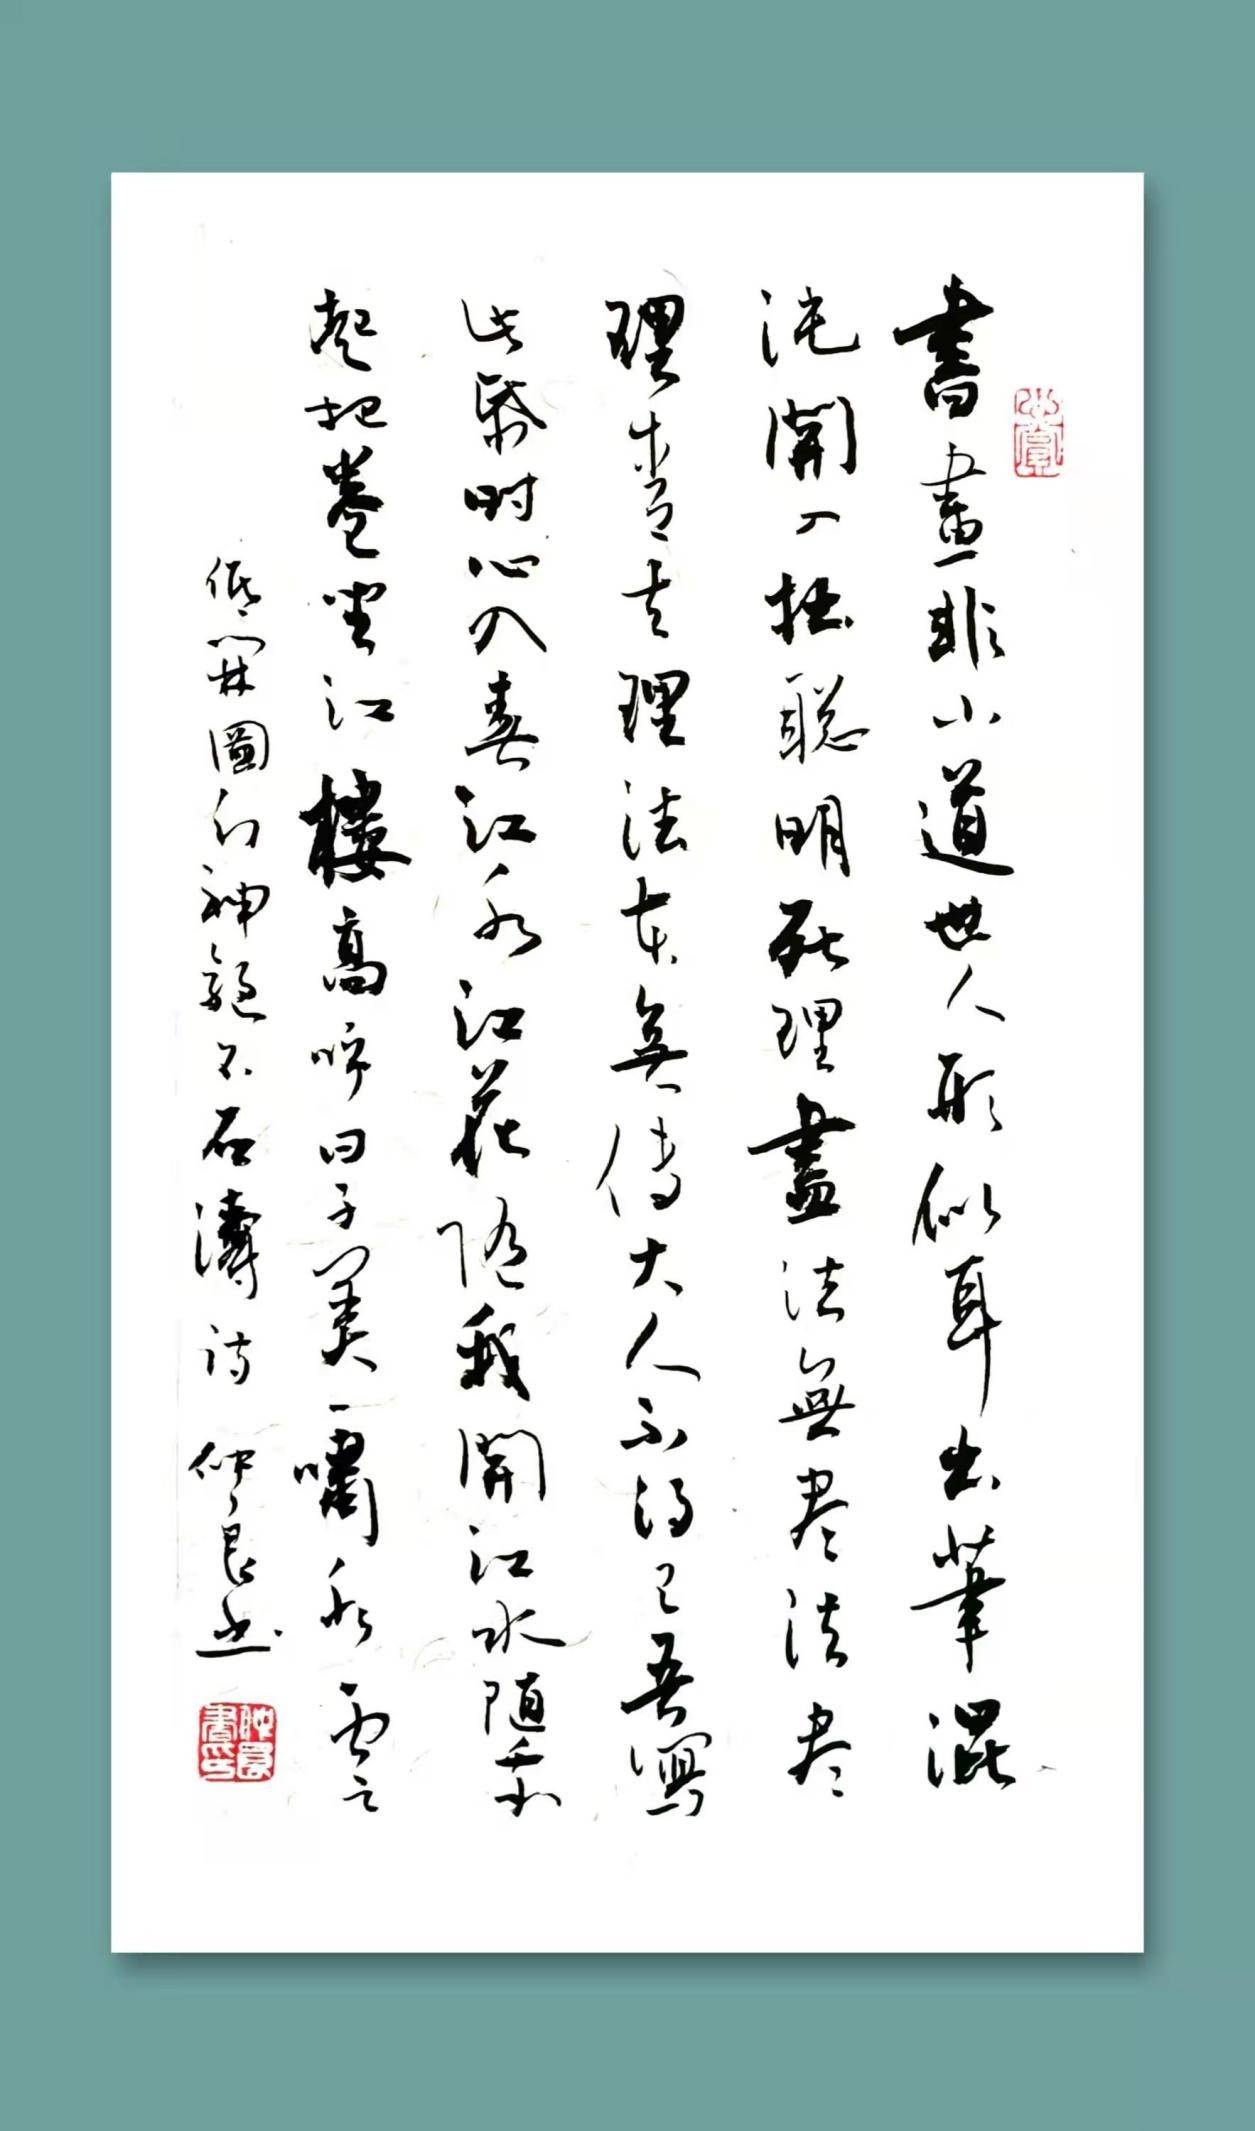 書畫非小道世人形似耳出筆混
沌開入拙聰明死理盡法無盡法盡
理 理法本無傳大人不得已吾寫
此紙時心入春江水江花隨我開江水隨我
起把卷坐江樓高呼曰子美一嘯水雲
低開圖幻神髓 石濤詩 仲良書
仲良書印